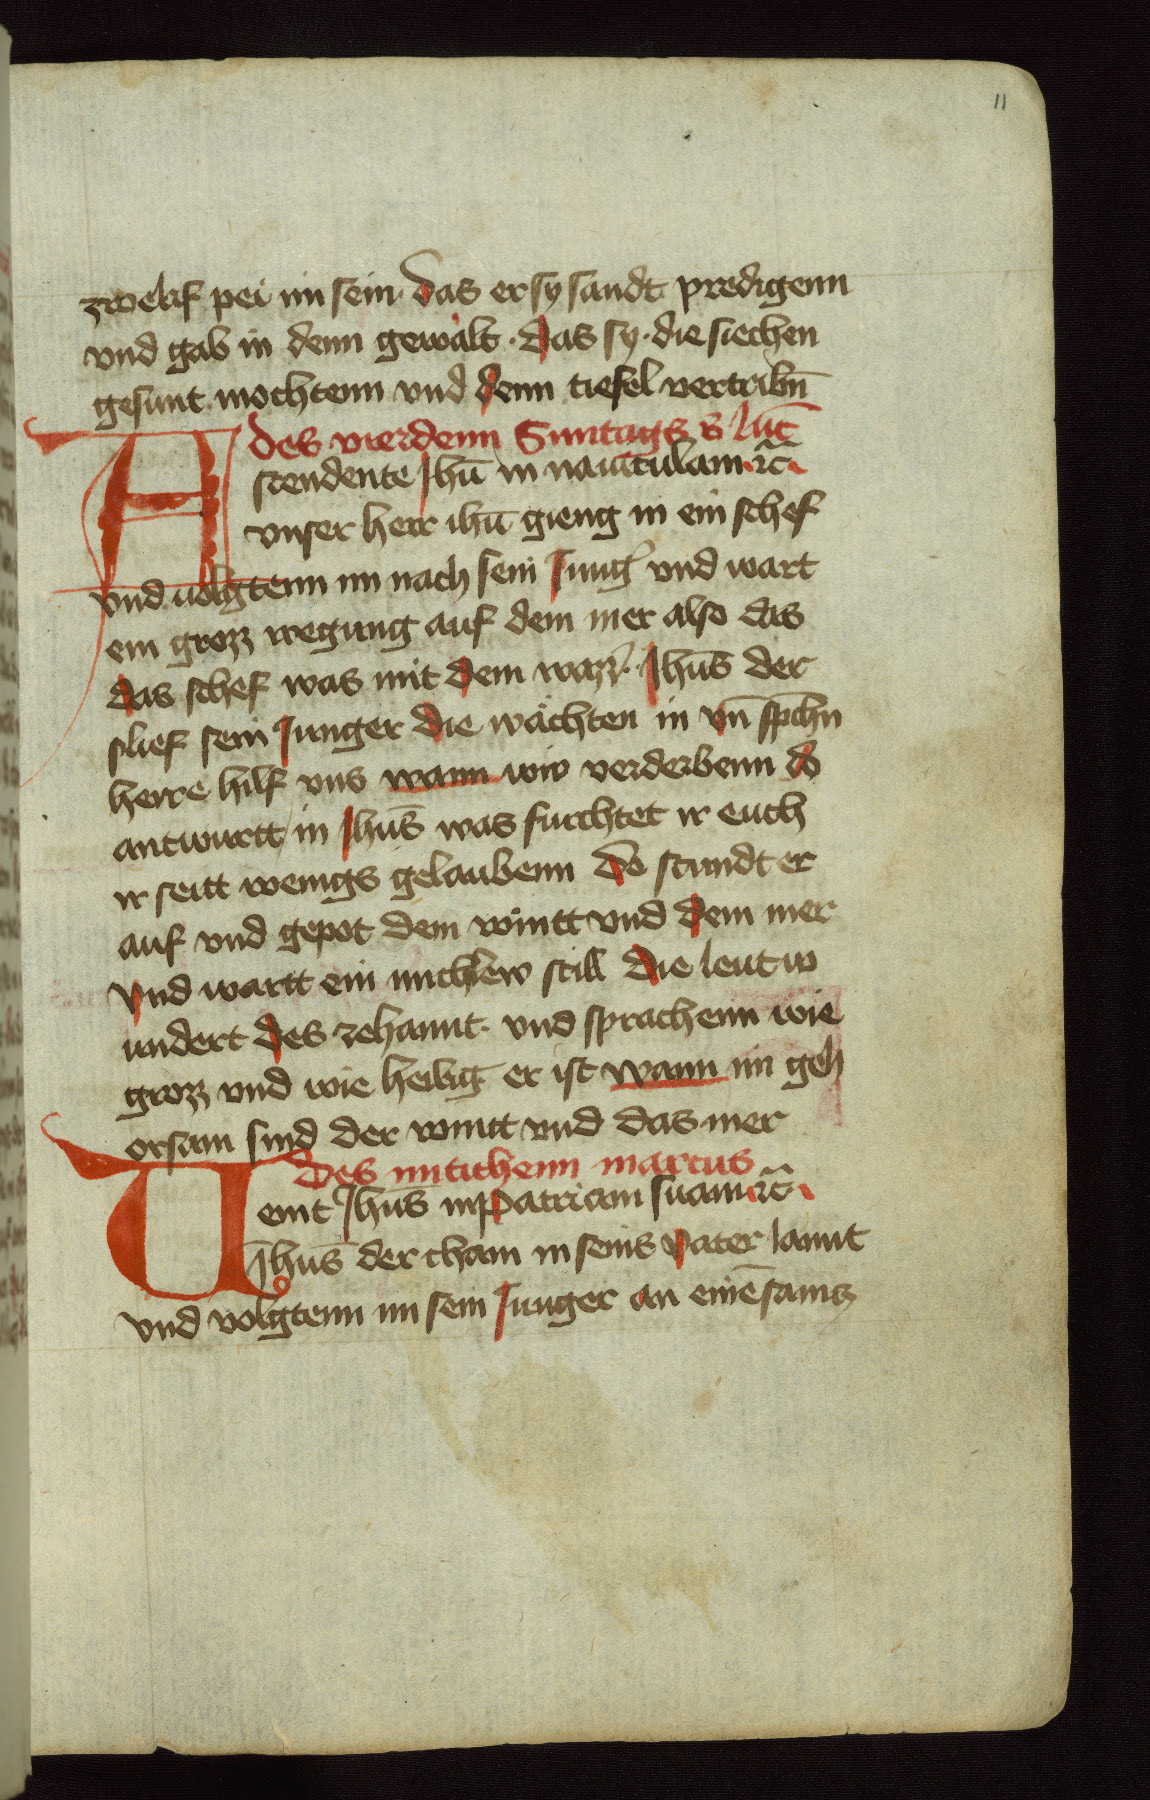 11
zwelif pei im sein · das er sy sandt predigenn
vnd gab in denn gewalt · das sy · die siechen
gesunt mochtenn vnd denn tiefel vertribn̄
des vierdenn Suntags s̄ luc̄
Ascendente Jhū in nauiculam ⁊c̄
vnser herr ihū gieng in ein schef
vnd uolgtenn im nach sein Jung̾ vnd wart
ein grozz wegung auf dem mer also das
das schef was mit dem wazz̾ · Jhūs der
slief sein Junger die wachten in vn̄ sp̄chn
herre hilf vns wann wir verderbenn do
antwurtt in Jhūs was furchtet ir euch
ir seitt wenigs gelaubenn do stundt er
auf vnd gepot dem wintt vnd dem mer
vnd wartt ein michlew still die leut w
undert des zehannt · vnd sprachenn wie
grozz vnd wie heilig er ist wann im geh
orsam sind der wintt vnd das mer
des mitichenn marcus
Uenit Jhūs in patriam suam ⁊c̄
Jhūs der cham in seins vater lannt
vnd volgtenn im sein Junger an einē samz